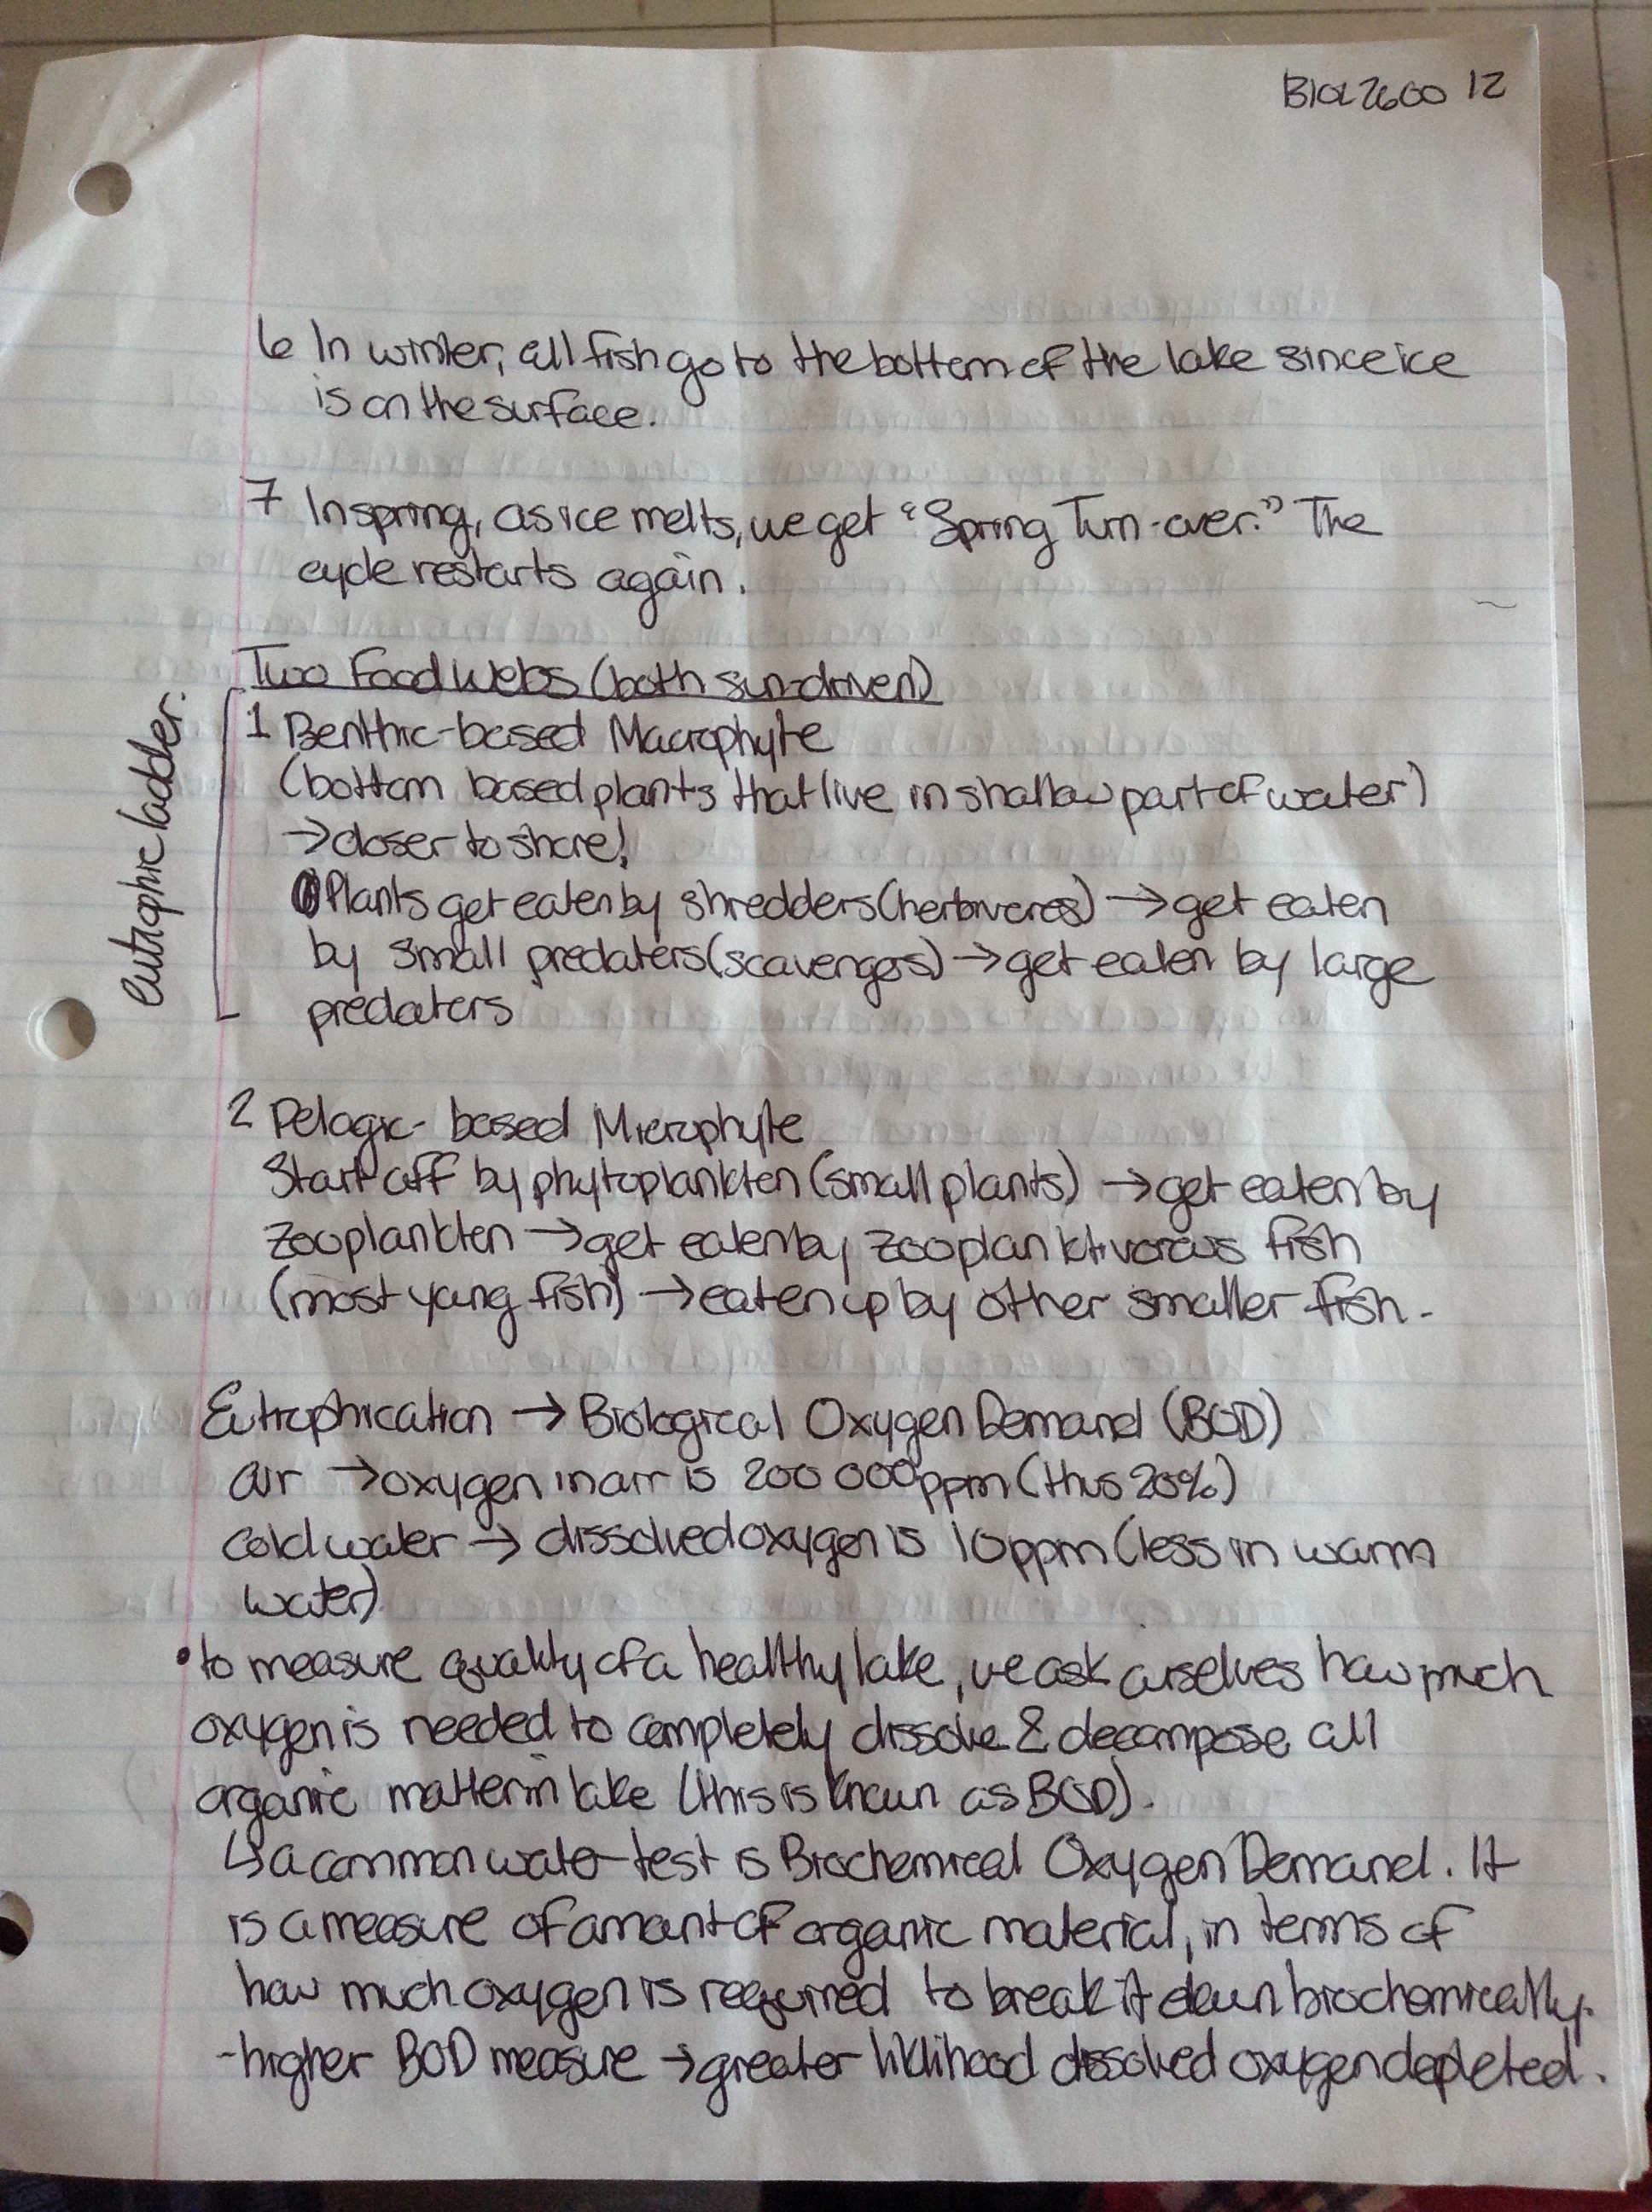 BIOL2600 12
6 In winter, all fish go to the bottom of the lake since ice
is on the surface.
7 In spring, as ice melts, we get "Spring Turn-over." The
cycle restarts again.
Two Food Webs (both sun-driven)
eutrophic ladder.
1 Benthic-based Macrophyte
(bottom based plants that live in shallow part of water)
→closer to shore!
Plants get eaten by shredders (herbivores) → get eaten
by small predators (scavengers) → get eaten by large
predators
2 Pelagic-based Microphyte
Start off by phytoplankton (small plants) → get eaten by
Zooplankton → get eaten by zooplanktivorous fish
(most young fish) → eaten up by other smaller fish.
Eutrophication → Biological Oxygen Demand (BOD)
air → oxygen in air is 200 000ppm (thus 20%)
cold water → dissolved oxygen is 10ppm (less in warm
water)
•to measure quality of a healthy lake, we ask ourselves how much
oxygen is needed to completely dissolve & decompose all
organic matter in lake (this is known as BOD).
↳a common water test is Biochemical Oxygen Demand. It
is a measure of amount of organic material, in terms of
how much oxygen is required to break it down biochemically.
-higher BOD measure → greater liklihood dissolved oxygen depleted.